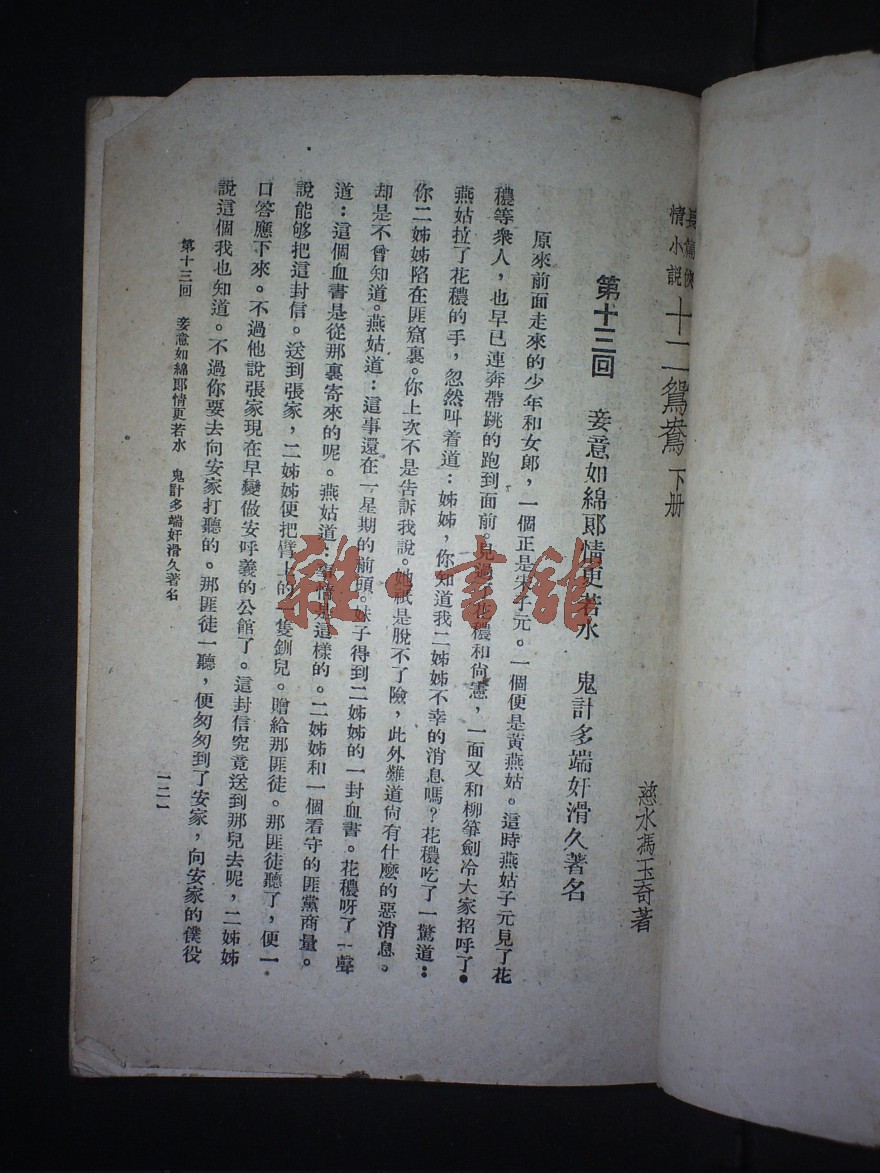 長篇俠
情小說
十二鴛鴦 下册
慈水馮玉奇著
第十三回 妾意如綿郎情更若水 鬼計多端奸滑久著名
原來前面走來的少年和女郎，一個正是宋子元。一個便是黃燕姑。這時燕姑子元見了花
穠等衆人，也早已連奔帶跳的跑到面前。見過了花穠和尙憲，一面又和柳箏劍冷大家招呼了。
燕姑拉了花穠的手，忽然叫着道：姊姊，你知道我二姊姊不幸的消息嗎？花穠吃了一驚道：
你二姊姊陷在匪窟裏。你上次不是告訴我說。她祇是脫不了險，此外難道尙有什麼的惡消息。
却是不曾知道。燕姑道：這事還在一星期的前頭。妹子得到二姊姊的一封血書。花穠呀了一聲
道：這個血書是從那裏寄來的呢。燕姑道：事情是這樣的。二姊姊和一個看守的匪黨商量。
說能够把這封信。送到張家，二姊姊便把臂上的一隻釧兒。贈給那匪徒。那匪徒聽了，便一
口答應下來。不過他說張家現在早變做安呼義的公館了。這封信究竟送到那兒去呢，二姊姊
說這個我也知道。不過你要去向安家打聽的。那匪徒一聽，便匆匆到了安家，向安家的僕役
第十三回 妾意如綿郎情更若水 鬼計多端奸滑久著名
一二一
雜·書館